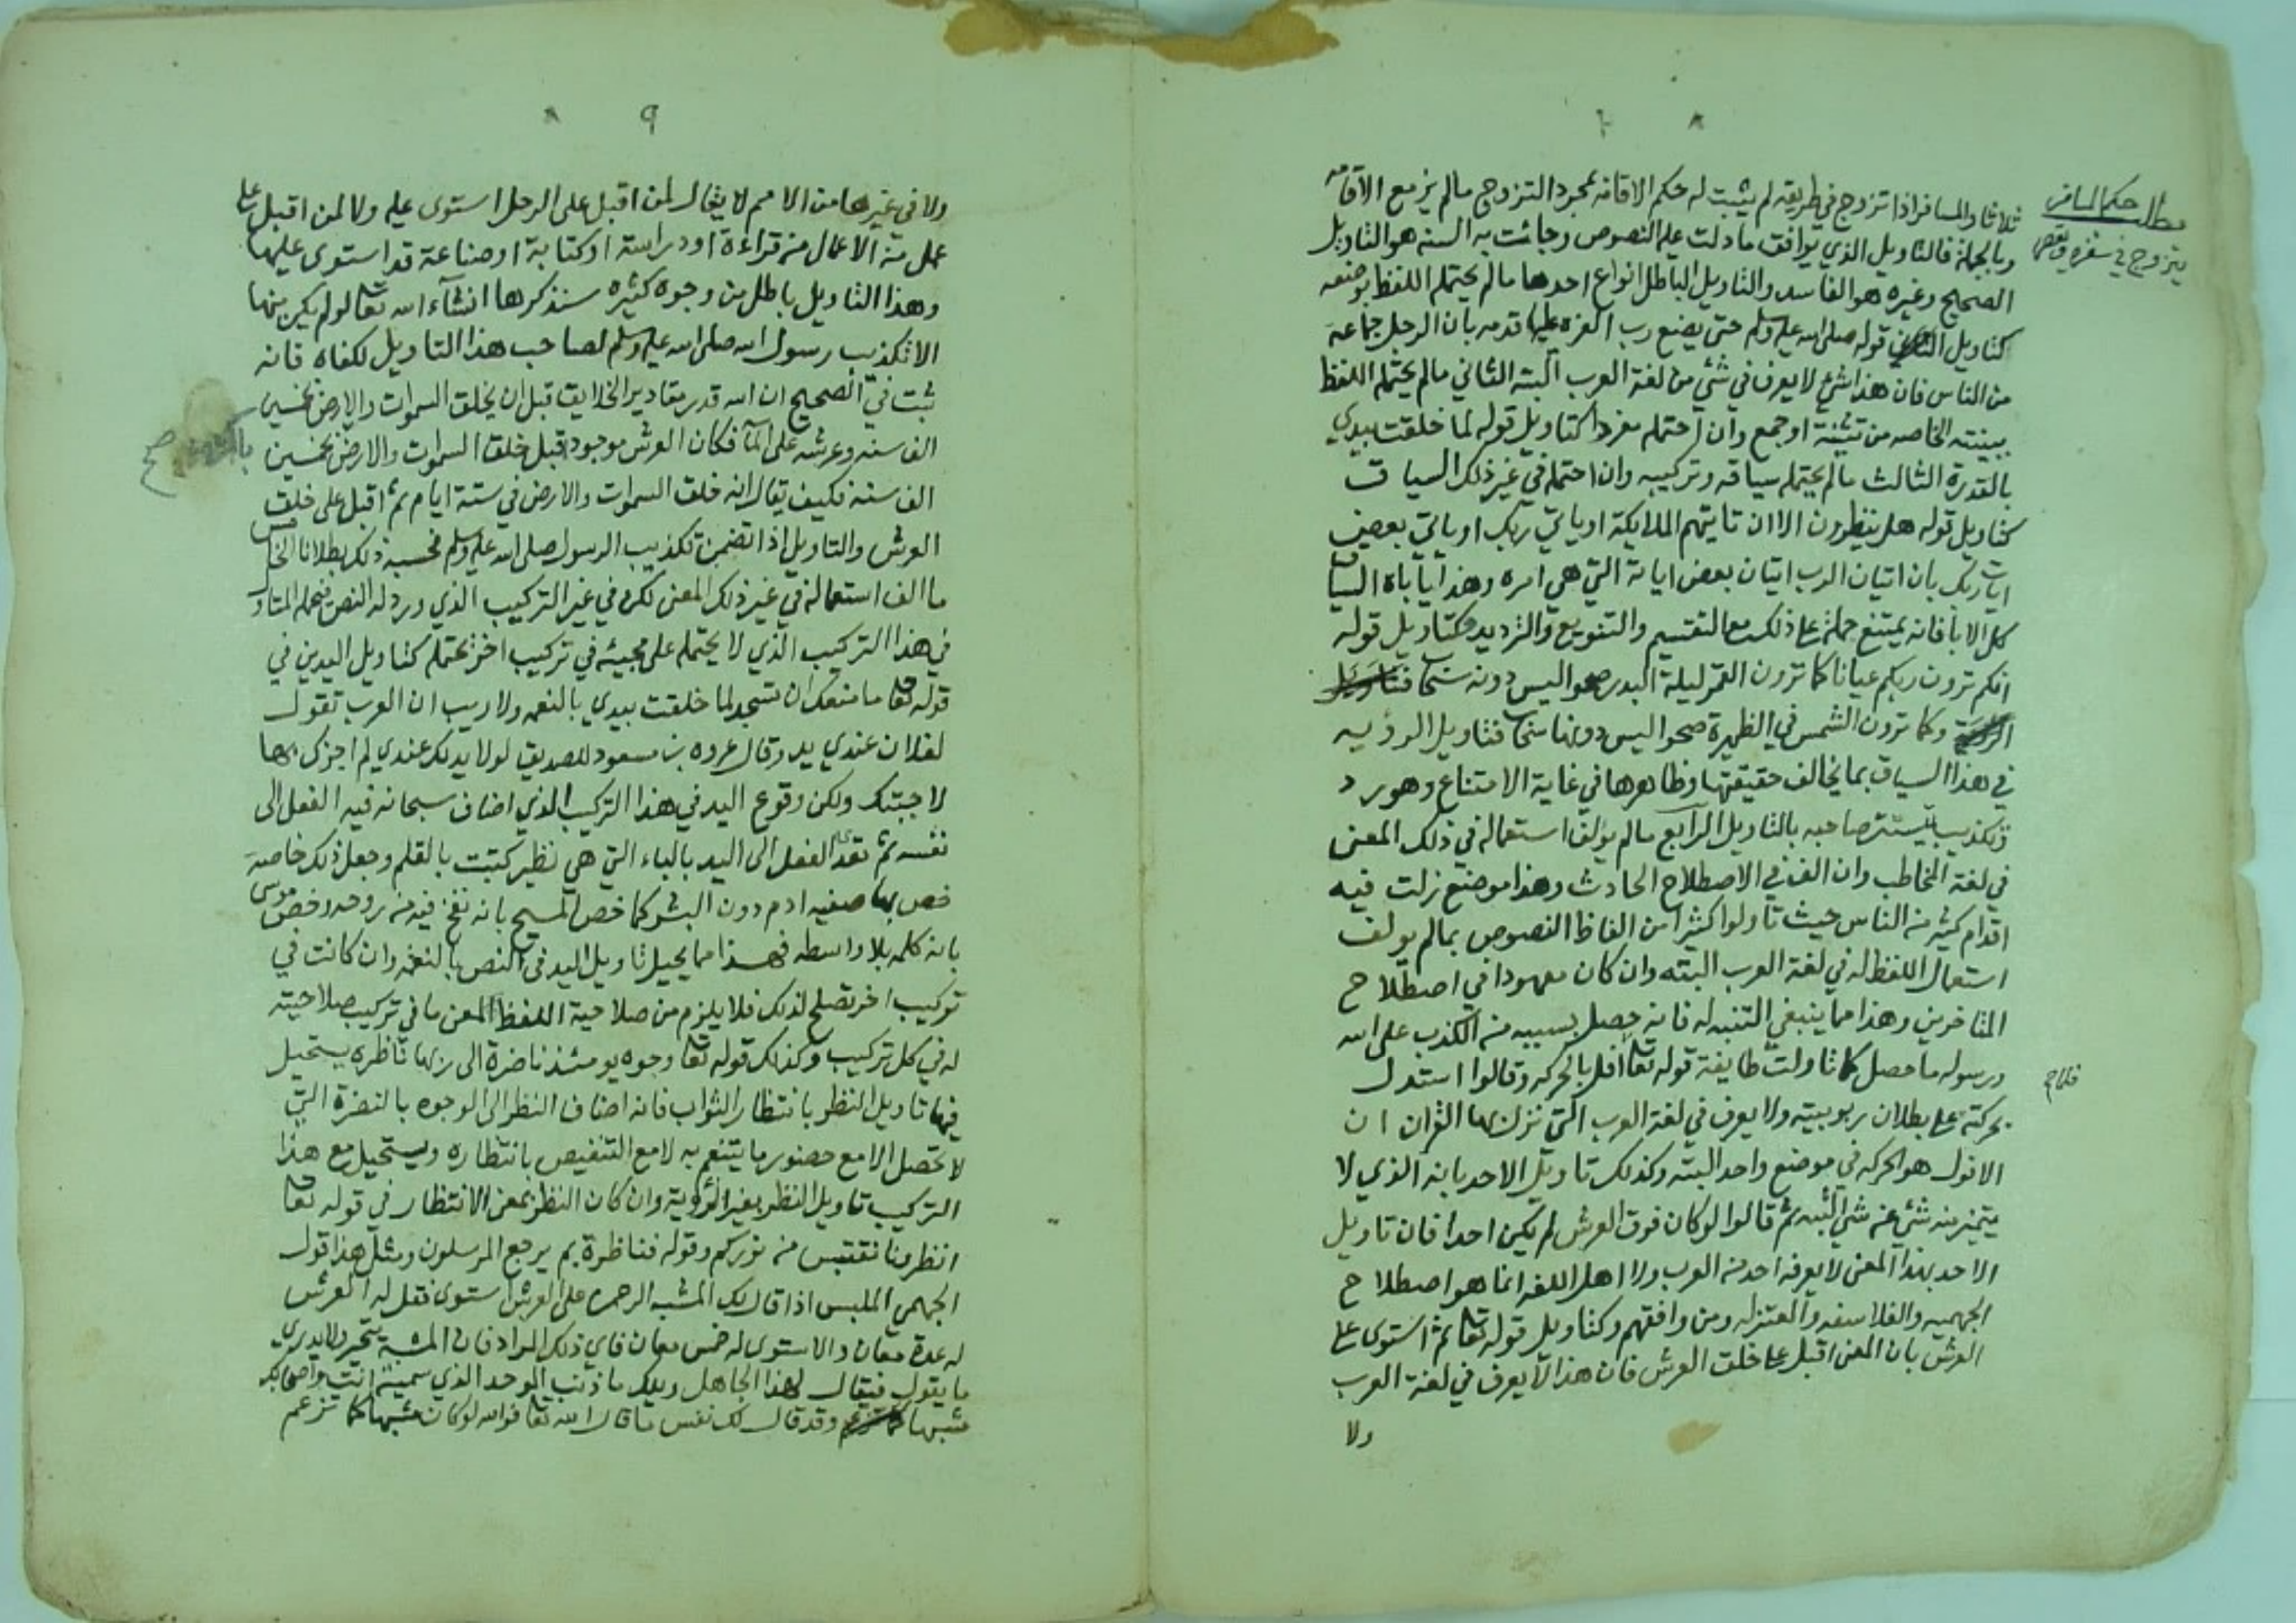 ٨
مطلب حكم المسافر
يتزوج في سفره
ثلاثا والمسافر اذا تزوج في طريقه لم يثبت له حكم الاقامه بمجرد التزوج مالم يزمع الاقامه
وبالجملة فالتاويل الذي يوافق ما دلت عليه النصوص وجائت به السنه هو التاويل
الصحيح وغيره هو الفاسد والتاويل الباطل انواع احدها مالم يحتمله اللفظ بوضعه
كتاويل قوله صلى الله عليه وسلم حتى يضع رب العزه عليها قدمه بان الرجل جماعة
من الناس فان هذا شئ لا يعرف في شئ من لغة العرب البته الثاني مالم يحتمله اللفظ
ببينته الخاصه من تثنية او جمع وان احتمله مفردا كتاويل قوله لما خلقت بيدي
بالقدرة الثالث مالم يحتمله سياقه وتركيبه وان احتمله في غير ذلك السياق
كتاويل قوله هل ينظرون الا ان تايتهم الملايكة او ياتي ربك او ياتي بعض
ايات ربك بان اتيان الرب اتيان بعض اياته التي هي امره وهذا يأباه السياق
كل الابا فانه يمتنع حمله على ذلك مع التقسيم والتنويع والترديد وكتاويل قوله
انكم ترون ربكم عيانا كما ترون القمر ليلة البدر صحوا ليس دونه سحاب
وكما ترون الشمس في الظهيرة صحوا ليس دونها سحاب فتاويل الرؤيه
في هذا السياق بما يخالف حقيقتها وظاهرها في غاية الامتناع وهو رد
وتكذيب يستتر صاحبه بالتاويل الرابع مالم يؤلف استعماله في ذلك المعنى
في لغة المخاطب وان الف في الاصطلاح الحادث وهذا موضع زلت فيه
اقدام كثير من الناس حيث تأولوا كثيرا من الفاظ النصوص بمالم يولف
استعمال اللفظ له في لغة العرب البته وان كان معهودا في اصطلاح
المتاخرين وهذا مما ينبغي التنبه له فانه حصل بسببه من الكذب على الله
ورسوله ما حصل كما تاولت طايفة قوله تعا افل بالحركه وقالوا استدل
بحركته على بطلان ربوبيته ولا يعرف في لغة العرب التي نزل بها القران ان
الافول هو الحركه في موضع واحد البته وكذلك تاويل الاحد بانه الذي لا
يتميز منه شئ عن شئ البته ثم قالوا لو كان فوق العرش لم يكن احدا فان تاويل
الاحد بهذا المعنى لا يعرفه احد من العرب ولا اهل اللغه انما هو اصطلاح
الجهميه والفلاسفه والمعتزله ومن وافقهم وكتاويل قوله تعا ثم استوى على
العرش بان المعنى اقبل على خلق العرش فان هذا لا يعرف في لغة العرب
ولا
٩
ولا في غيرها من الامم لا يقال لمن اقبل على الرحل استوى عليه ولا لمن اقبل على
عمل من الاعمال من قراءة او دراسة او كتابة او صناعة قد استوى عليها
وهذا التاويل باطل من وجوه كثيره سنذكرها انشآء الله تعا لو لم يكن منها
الا تكذيب رسول الله صلى الله عليه وسلم لصاحب هذا التاويل لكفاه فانه
ثبت في الصحيح ان الله قدر مقادير الخلايق قبل ان يخلق السموات والارض بخمسين
الف سنه وعرشه على المآ فكان العرش موجودا قبل خلق السموات والارض بخمسين
الف سنة فكيف يقال انه خلق السموات والارض في ستة ايام ثم اقبل على خلق
العرش والتاويل اذا تضمن تكذيب الرسول صلى الله عليه وسلم فحسبه ذلك بطلانا الخامس
ما الف استعماله في غير ذلك المعنى لكن في غير التركيب الذي ورد له النص فيحمله المتاول
في هذا التركيب الذي لا يحتمله على مجيئه في تركيب اخر يحتمله كتاويل اليدين في
قوله تعا ما منعك ان تسجد لما خلقت بيدي بالنعمه ولا ريب ان العرب تقول
لفلان عندي يد وقال عروه بن مسعود للصديق لولا يد لك عندي لم اجزك بها
لاجبتك ولكن وقوع اليد في هذا التركيب الذي اضاف سبحانه فيه الفعل الى
نفسه ثم تعدى الفعل الى اليد بالباء التي هي نظير كتبت بالقلم وجعل ذلك خاصة
خص بها صفيه ادم دون البشر كما خص المسيح بانه نفخ فيه من روحه وخص موسى
بانه كلمه بلا واسطه فهذا مما يحيل تاويل اليد في النص بالنعمه وان كانت في
تركيب اخر تصلح لذلك فلا يلزم من صلاحية اللفظ المعنى ما في تركيب صلاحيته
له في كل تركيب وكذلك قوله تعا وجوه يومئذ ناضرة الى ربها ناظره يستحيل
فيها تاويل النظر بانتظار الثواب فانه اضاف النظر الى الوجوه بالنضرة التي
لا تحصل الا مع حضور ما يتنعم به لا مع التنغيص بانتظاره ويستحيل مع هذا
التركيب تاويل النظر بغير الرؤية وان كان النظر بمعنى الانتظار في قوله تعا
انظرونا نقتبس من نوركم وقوله فناظرة بم يرجع المرسلون ومثل هذا قول
الجهمي الملبس اذا قال لك المشبه الرحمن على العرش استوى فقل له العرش
له عدة معان والاستوى له خمس معان فاي ذلك المراد فان المشبه يتحير ولا يدري
ما يقول فيقال لهذا الجاهل ويلك ما ذنب الموحد الذي سميته انت واصحابك
مشبها وقد قال لك نفس ما قال الله تعا فوالله لو كان مشبها كما تزعم